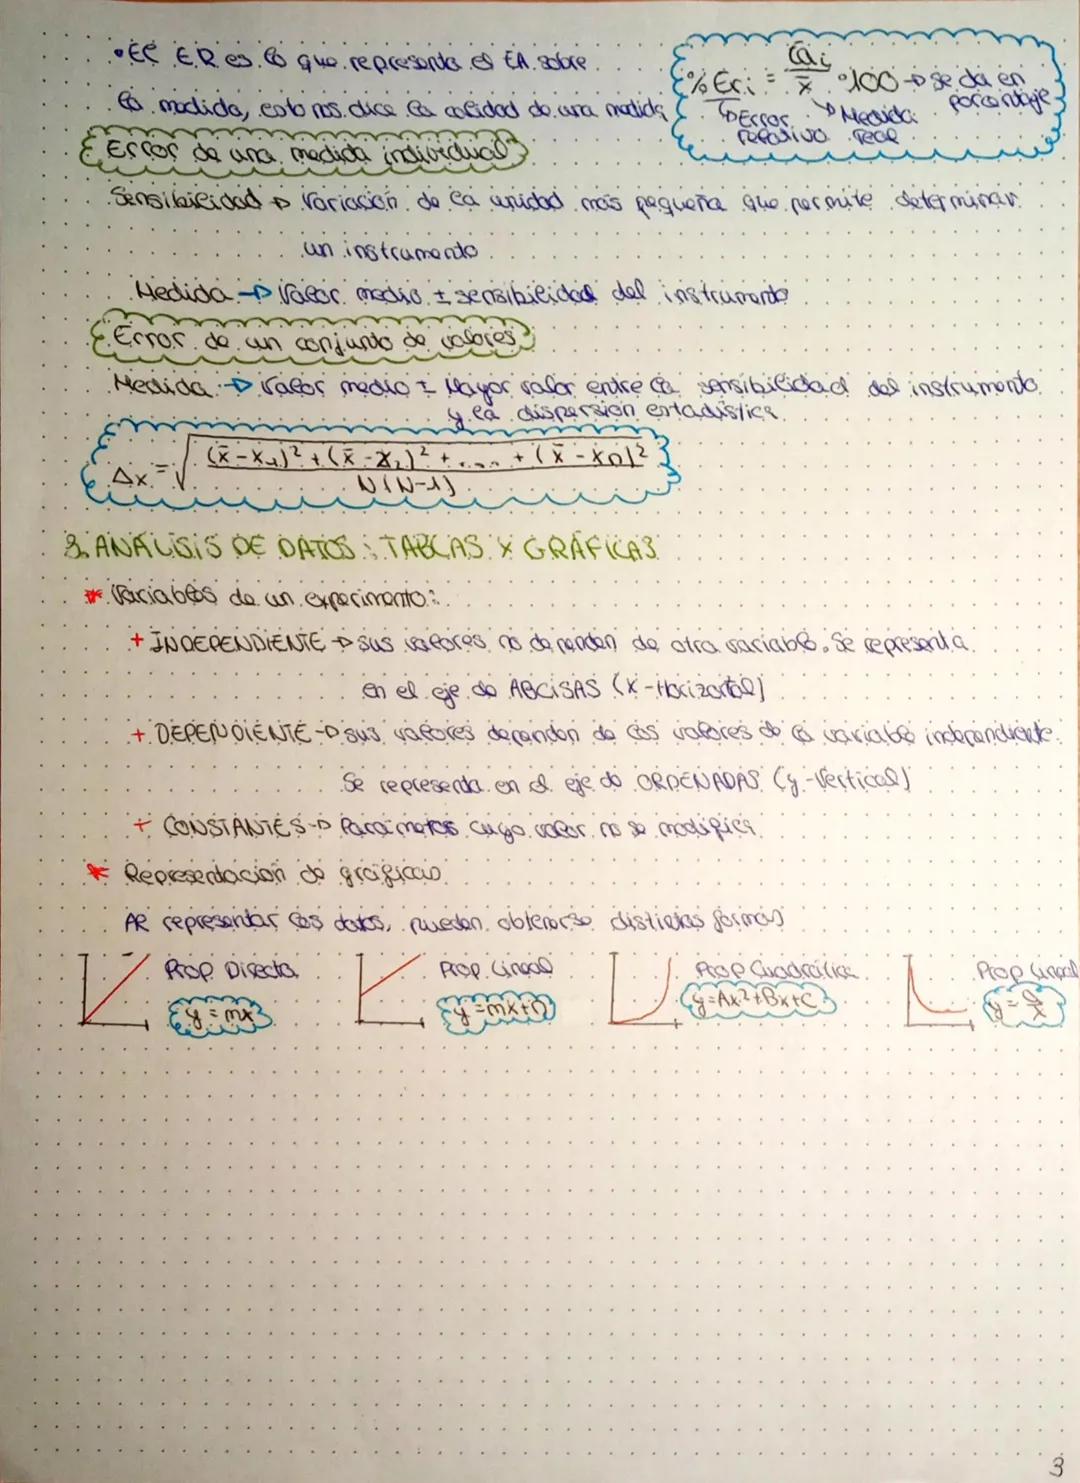 • El ER es lo que representa el EA sobre
la medida, esto nos dice la calidad de una medida
%Eri = Eai / x̄ · 100 → se da en porcentaje
↳ Error relativo
↘ Medida real
Error de una medida individual
Sensibilidad → Variación de la unidad más pequeña que permite determinar
un instrumento
Medida → Valor medio ± sensibilidad del instrumento
Error de un conjunto de valores
Medida → Valor medio ± Mayor valor entre la sensibilidad del instrumento
y la dispersión estadística
Δx = √((x̄-x₁)² + (x̄-x₂)² + .... + (x̄-xn)² / N(N-1))
3. ANÁLISIS DE DATOS: TABLAS Y GRÁFICAS
* Variables de un experimento:
+ INDEPENDIENTE → sus valores no dependen de otra variable. Se representa
en el eje de ABCISAS (x-Horizontal)
+ DEPENDIENTE → sus valores dependen de los valores de la variable independiente.
Se representa en el eje de ORDENADAS (y-Vertical)
+ CONSTANTES → Parámetros cuyo valor no se modifica
* Representación de gráficas
Al representar los datos, pueden obtenerse distintas formas
Prop. Directa
y = mx
Prop. Lineal
y = mx+n
Prop Cuadrática
y = Ax²+Bx+C
Prop Lineal
3